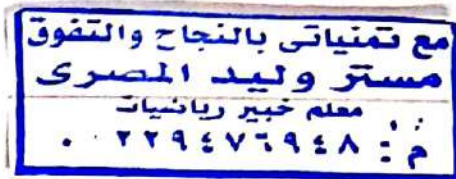 مع تمنياتى بالنجاح والتفوق
مستر وليد المصرى
معلم خبير رياضيات
م : ٠٢٢٩٤٧٦٩٤٨